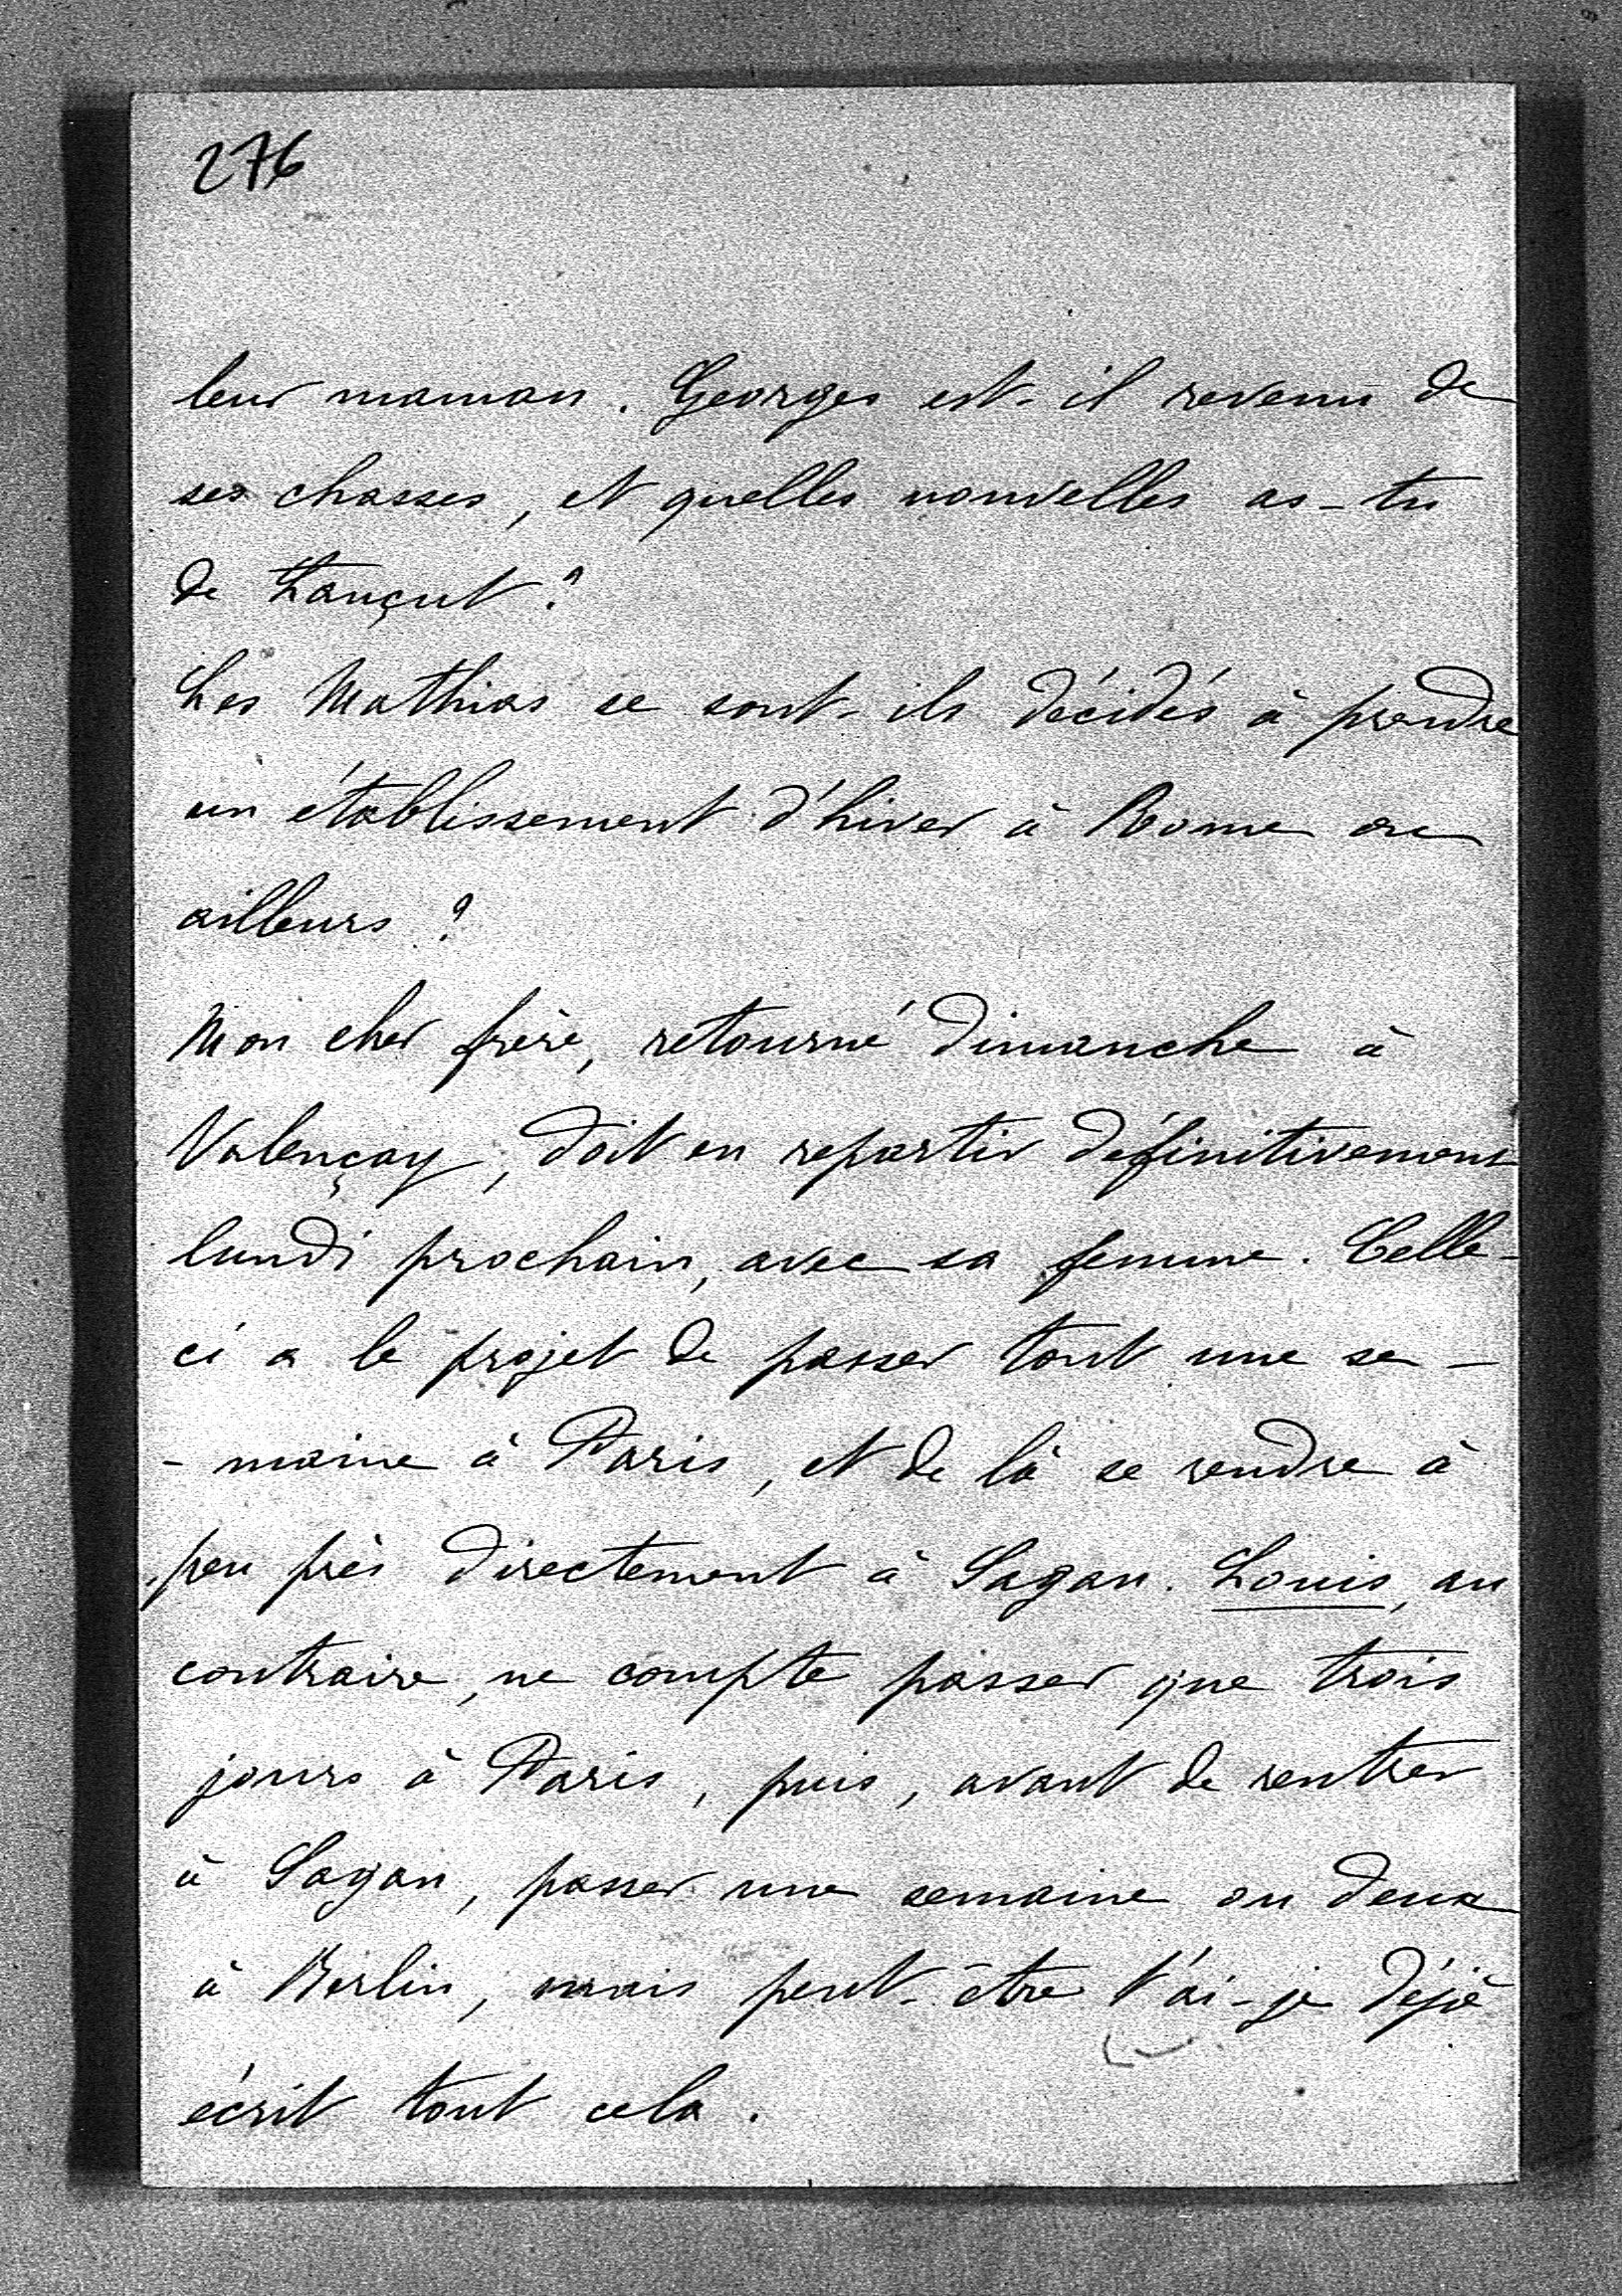 276
leur maman. Georges est-il revenu de
ses chasses, et quelles nouvelles as-tu
de Lançut?
Les Mathias se sont-ils décidés à prendre
un établissement d'hiver à Rome ou
ailleurs?
Mon cher frère, retourné dimanche à
Valençay, doit en repartir définitivement
lundi prochain, avec sa femme. Celle-
ci a le projet de passer tout une se-
-maine à Paris, et de là se rendre à
peu près directement à Sagan. Louis, au
contraire, ne compte passer que trois
jours à Paris, puis, avant de rentrer
à Sagan, passer une semaine ou deux
à Berlin, mais peut-être t'ai-je déjà
écrit tout cela.